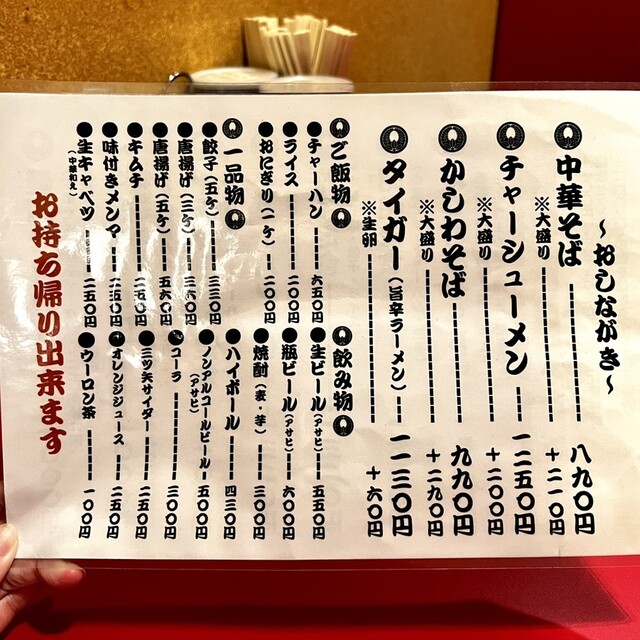 ～おしながき～
中華そば 八九〇円
※大盛り ＋二一〇円
チャーシューメン 一二五〇円
※大盛り ＋二〇〇円
かしわそば 九九〇円
※大盛り ＋二九〇円
タイガー（旨辛ラーメン） 一一三〇円
※生卵 ＋六〇円
ご飯物
●チャーハン 六五〇円
●ライス 二〇〇円
●おにぎり（一ケ） 二〇〇円
一品物
●餃子（五ケ） 三三〇円
●唐揚げ（三ケ） 三六〇円
●唐揚げ（五ケ） 五六〇円
●キムチ 二五〇円
●味付きメンマ 二五〇円
●生キャベツ（中華和え） 二五〇円
飲み物
●生ビール（アサヒ） 五五〇円
●瓶ビール（アサヒ） 六〇〇円
●焼酎（麦・芋） 三〇〇円
●ハイボール 四三〇円
●ノンアルコールビール（アサヒ） 五〇〇円
●コーラ 三〇〇円
●三ツ矢サイダー 二五〇円
●オレンジジュース 二五〇円
●ウーロン茶 一〇〇円
お持ち帰り出来ます